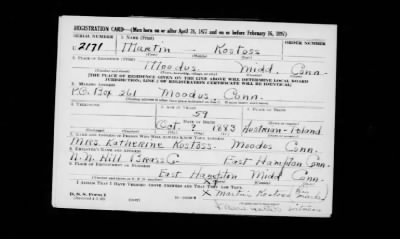 REGISTRATION CARD—(Men born on or after April 28, 1877 and on or before February 16, 1897)
SERIAL NUMBER 1. NAME (Print) ORDER NUMBER
U 2171 Martin — Kostoss
(First) (Middle) (Last)
2. PLACE OF RESIDENCE (Print)
Moodus Midd. Conn.
(Number and street) (Town, township, village, or city) (County) (State)
[THE PLACE OF RESIDENCE GIVEN ON THE LINE ABOVE WILL DETERMINE LOCAL BOARD
JURISDICTION; LINE 2 OF REGISTRATION CERTIFICATE WILL BE IDENTICAL]
3. MAILING ADDRESS
P.O. Box 261 Moodus Conn.
4. TELEPHONE 5. AGE IN YEARS 6. PLACE OF BIRTH
59
DATE OF BIRTH
Oct ? 1883 Austrian-Poland
(Mo.) (Day) (Yr.)
7. NAME AND ADDRESS OF PERSON WHO WILL ALWAYS KNOW YOUR ADDRESS
Mrs. Katherine Kostoss. Moodus Conn.
8. EMPLOYER'S NAME AND ADDRESS
N. N. Hill Brass Co East Hampton Conn.
9. PLACE OF EMPLOYMENT OR BUSINESS
East Hampton Midd Conn.
I AFFIRM THAT I HAVE VERIFIED ABOVE ANSWERS AND THAT THEY ARE TRUE.
D. S. S. Form 1 X Martin Kostoss (his mark)